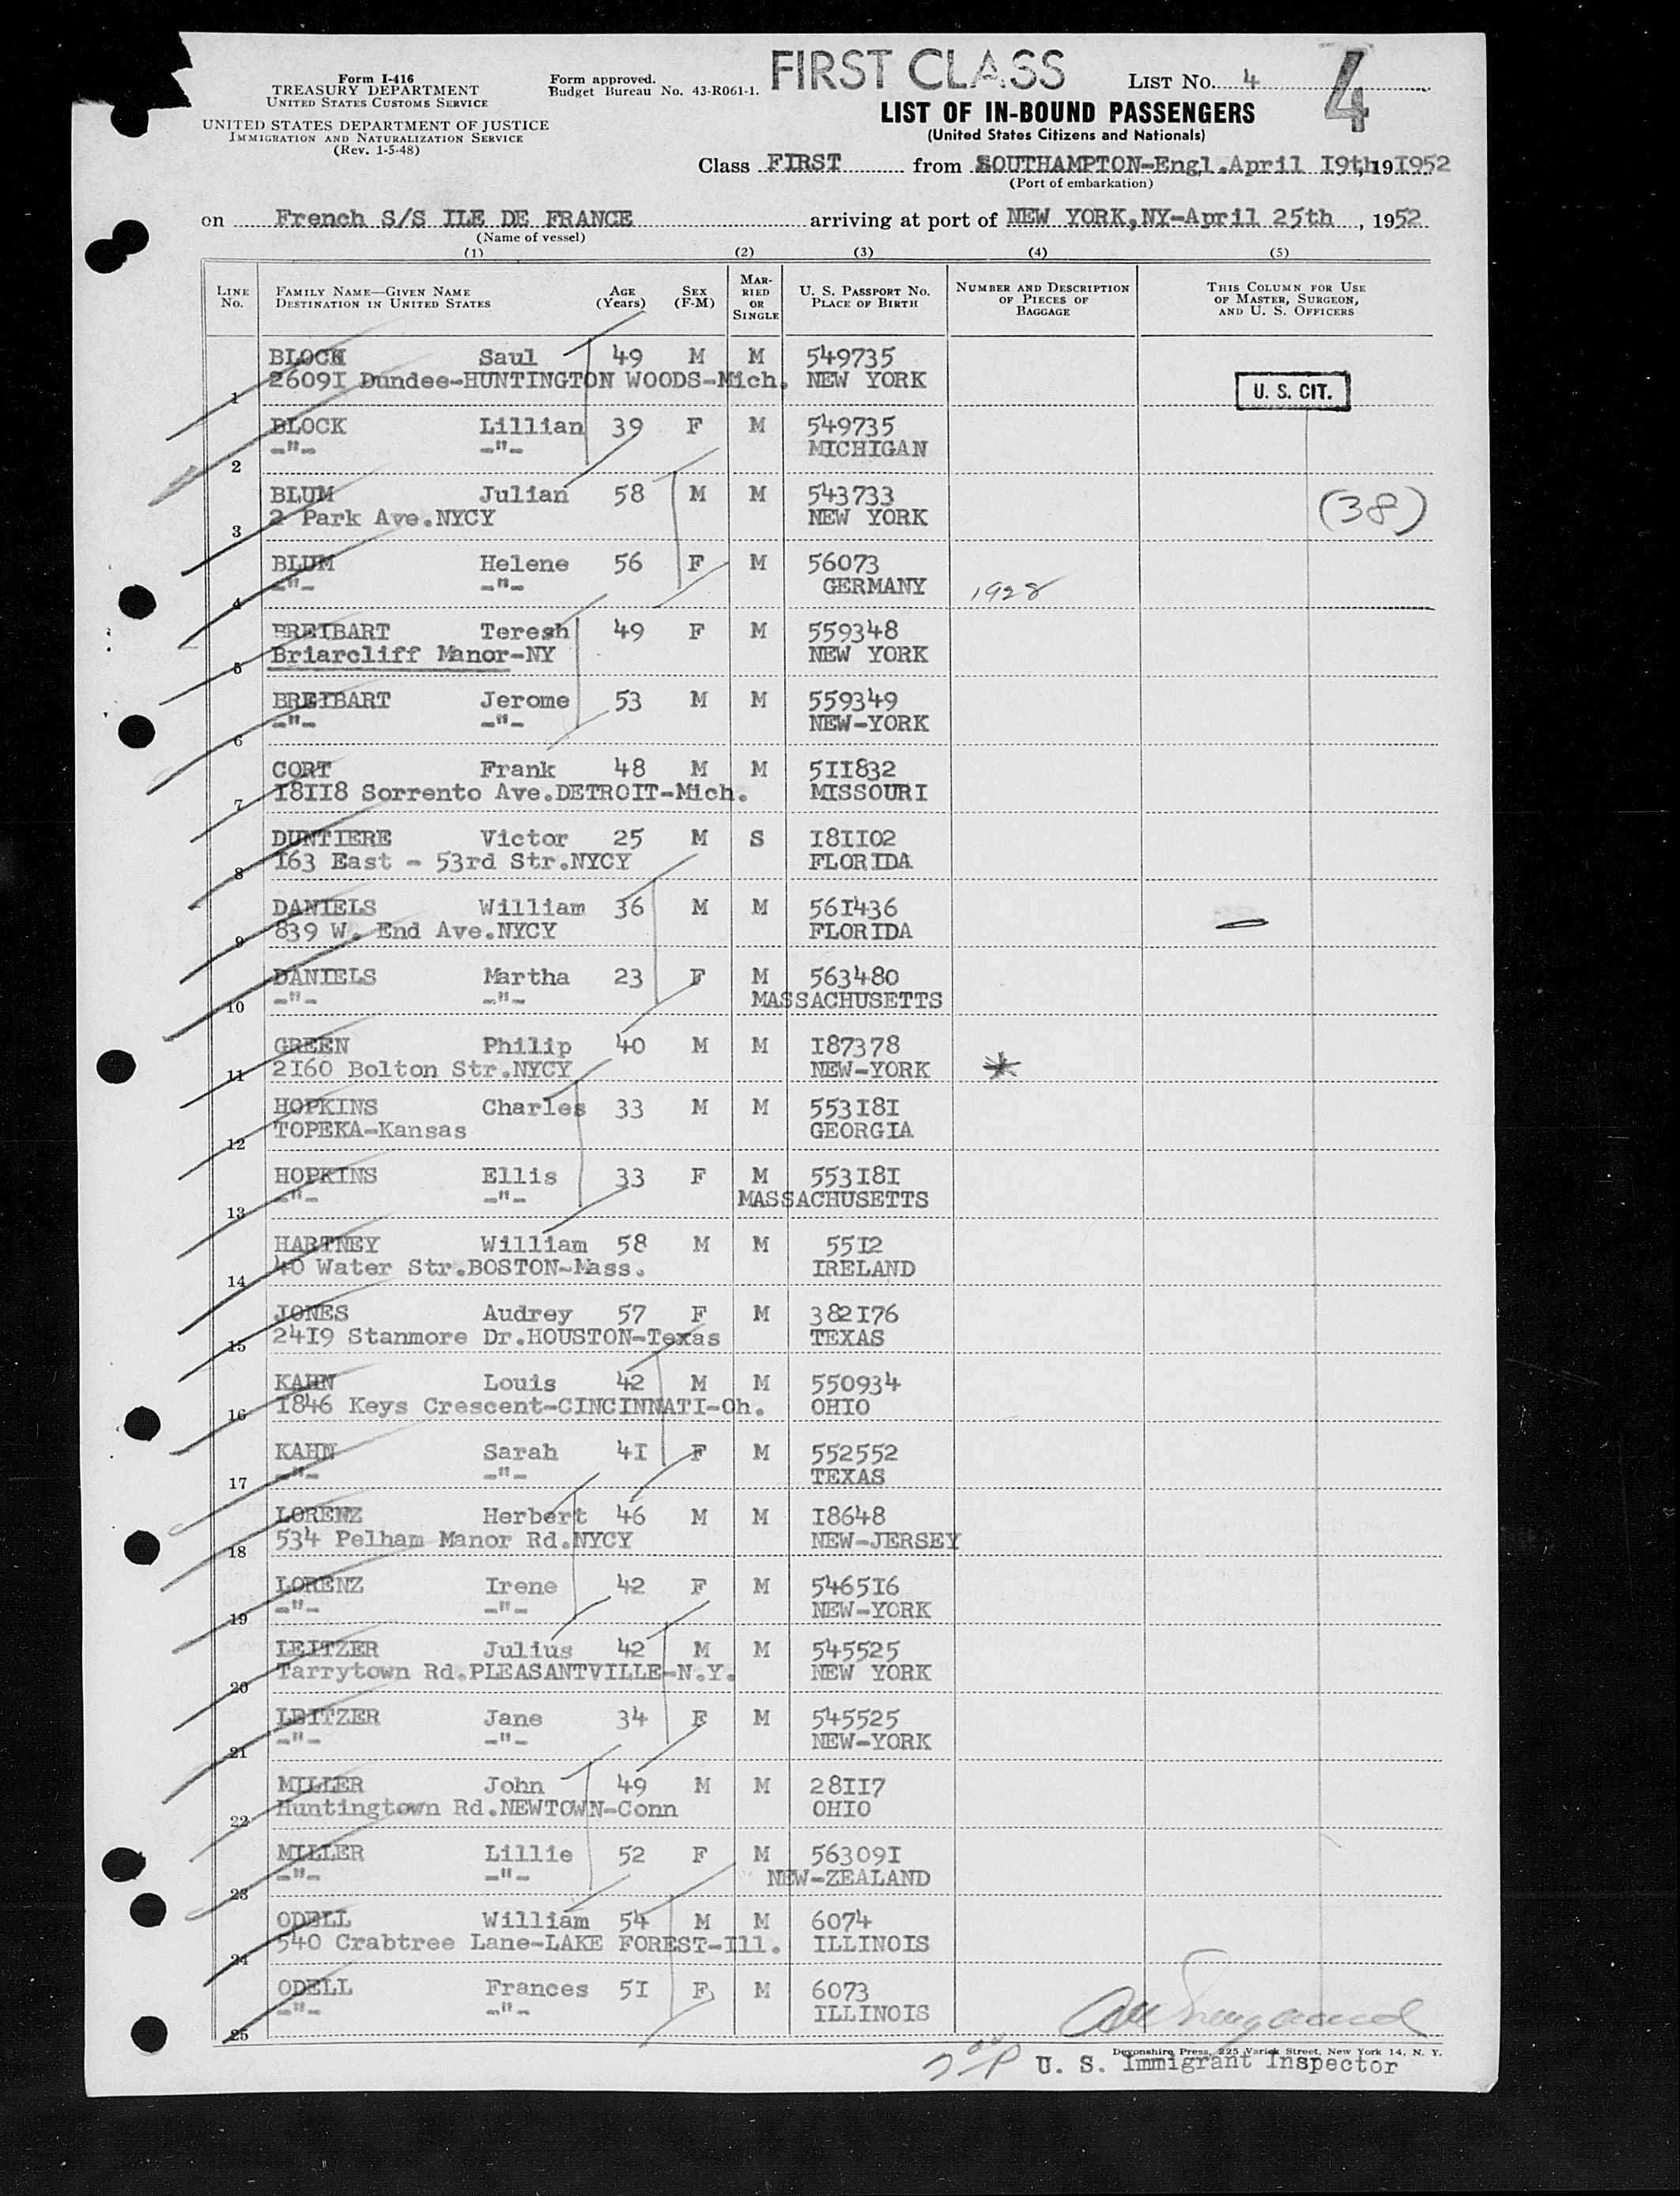 Form I-416
TREASURY DEPARTMENT
UNITED STATES CUSTOMS SERVICE
UNITED STATES DEPARTMENT OF JUSTICE
IMMIGRATION AND NATURALIZATION SERVICE
(Rev. 1-5-48)
Form approved.
Budget Bureau No. 43-R061-1.
FIRST CLASS
LIST NO. 4
4
LIST OF IN-BOUND PASSENGERS
(United States Citizens and Nationals)
Class FIRST from SOUTHAMPTON-Engl.April I9th, 191952
(Port of embarkation)
on French S/S ILE DE FRANCE arriving at port of NEW YORK,NY-April 25th , 1952
(Name of vessel)
(1) (2) (3) (4) (5)
LINE No. FAMILY NAME—GIVEN NAME DESTINATION IN UNITED STATES AGE (Years) SEX (F-M) MARRIED OR SINGLE U. S. PASSPORT NO. PLACE OF BIRTH NUMBER AND DESCRIPTION OF PIECES OF BAGGAGE THIS COLUMN FOR USE OF MASTER, SURGEON, AND U. S. OFFICERS
BLOCK Saul 49 M M 549735
1 2609I Dundee-HUNTINGTON WOODS-Mich. NEW YORK U. S. CIT.
BLOCK Lillian 39 F M 549735
2 -"- -"- MICHIGAN
BLUM Julian 58 M M 543733
3 2 Park Ave.NYCY NEW YORK (38)
BLUM Helene 56 F M 56073
4 -"- -"- GERMANY 1928
BREIBART Teresh 49 F M 559348
5 Briarcliff Manor-NY NEW YORK
BREIBART Jerome 53 M M 559349
6 -"- -"- NEW-YORK
CORT Frank 48 M M 5II832
7 I8II8 Sorrento Ave.DETROIT-Mich. MISSOURI
DUNTIERE Victor 25 M S I8II02
8 I63 East - 53rd Str.NYCY FLORIDA
DANIELS William 36 M M 56I436
9 839 W. End Ave.NYCY FLORIDA
DANIELS Martha 23 F M 563480
10 -"- -"- MASSACHUSETTS
GREEN Philip 40 M M I87378
11 2I60 Bolton Str.NYCY NEW-YORK
HOPKINS Charles 33 M M 553I8I
12 TOPEKA-Kansas GEORGIA
HOPKINS Ellis 33 F M 553I8I
13 -"- -"- MASSACHUSETTS
HARTNEY William 58 M M 55I2
14 40 Water Str.BOSTON-Mass. IRELAND
JONES Audrey 57 F M 382I76
15 24I9 Stanmore Dr.HOUSTON-Texas TEXAS
KAHN Louis 42 M M 550934
16 I846 Keys Crescent-CINCINNATI-Oh. OHIO
KAHN Sarah 4I F M 552552
17 -"- -"- TEXAS
LORENZ Herbert 46 M M I8648
18 534 Pelham Manor Rd.NYCY NEW-JERSEY
LORENZ Irene 42 F M 5465I6
19 -"- -"- NEW-YORK
LEITZER Julius 42 M M 545525
20 Tarrytown Rd.PLEASANTVILLE-N.Y. NEW YORK
LEITZER Jane 34 F M 545525
21 -"- -"- NEW-YORK
MILLER John 49 M M 28II7
22 Huntingtown Rd.NEWTOWN-Conn OHIO
MILLER Lillie 52 F M 56309I
23 -"- -"- NEW-ZEALAND
ODELL William 54 M M 6074
24 540 Crabtree Lane-LAKE FOREST-Ill. ILLINOIS
ODELL Frances 5I F M 6073
25 -"- -"- ILLINOIS
Devonshire Press, 225 Varick Street, New York 14, N. Y.
U. S. Immigrant Inspector